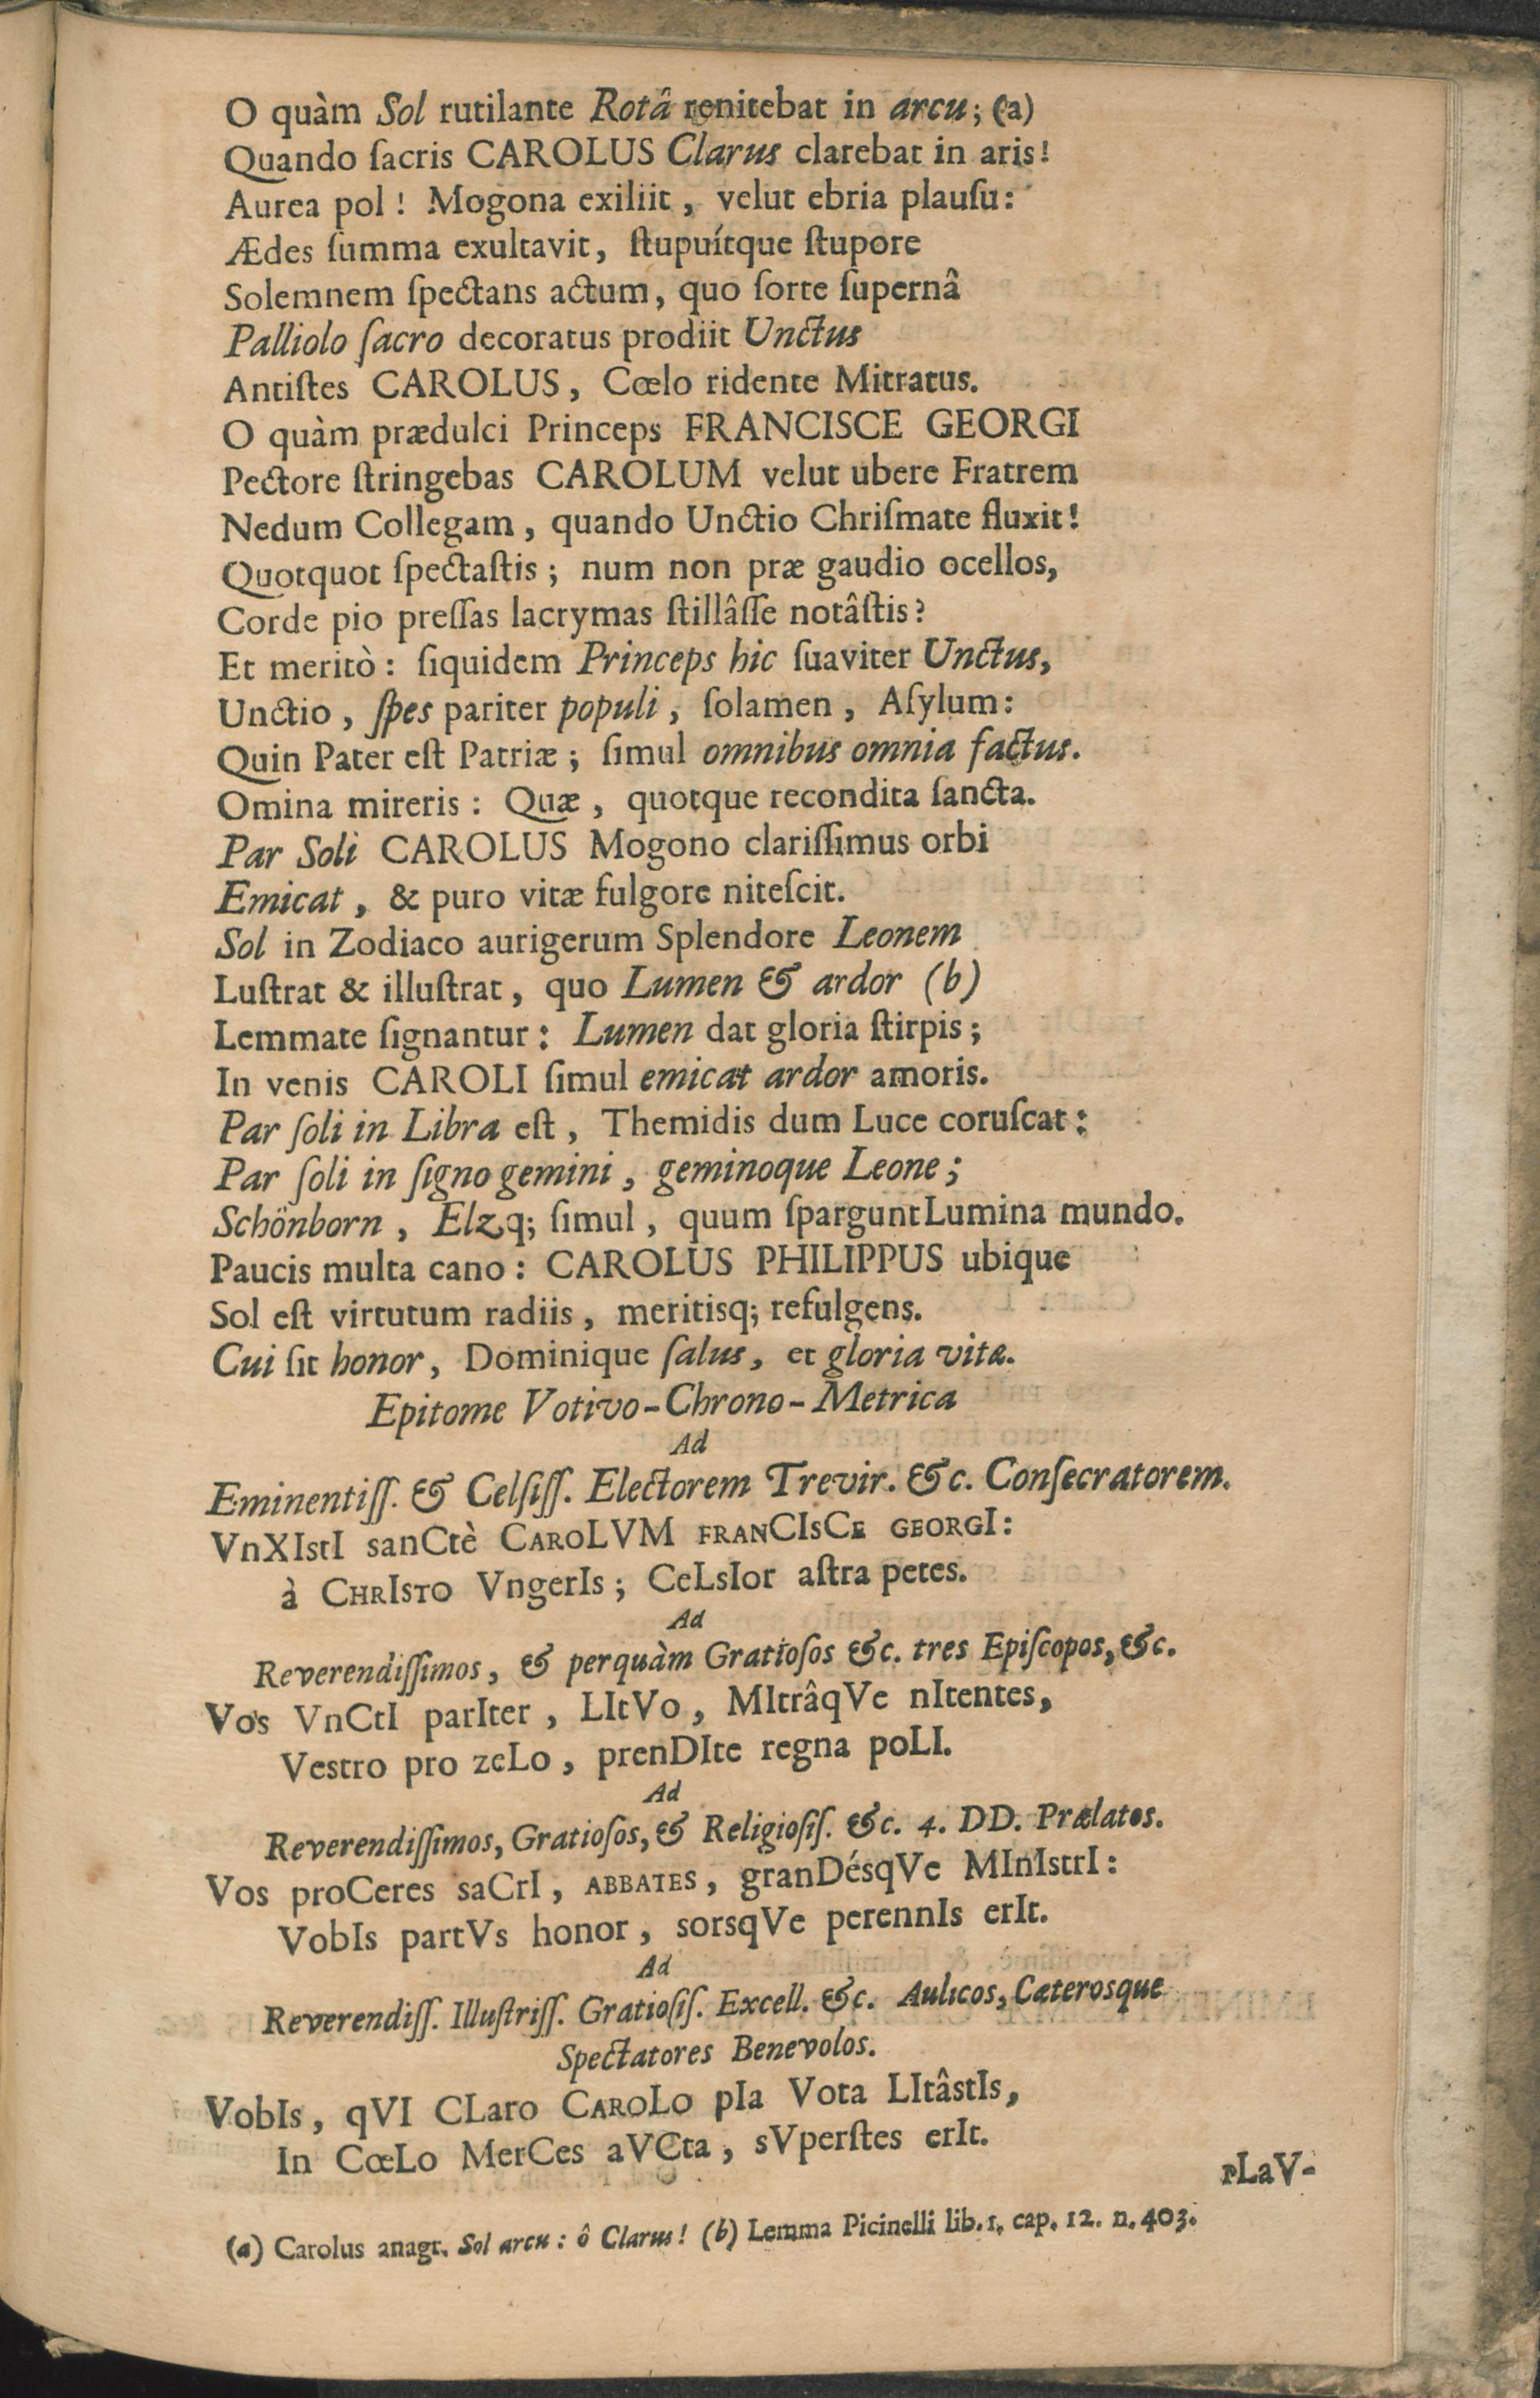 O quàm Sol rutilante Rotâ renitebat in arcu; (a)
Quando ſacris CAROLUS Clarus clarebat in aris!
Aurea pol! Mogona exiliit, velut ebria plauſu:
Ædes ſumma exultavit, ſtupuítque ſtupore
Solemnem ſpectans actum, quo ſorte ſupernâ
Palliolo ſacro decoratus prodiit Unctus
Antiſtes CAROLUS, Cœlo ridente Mitratus.
O quàm prædulci Princeps FRANCISCE GEORGI
Pectore ſtringebas CAROLUM velut ubere Fratrem
Nedum Collegam, quando Unctio Chriſmate fluxit!
Quotquot ſpectaſtis; num non præ gaudio ocellos,
Corde pio preſſas lacrymas ſtillâſſe notâſtis?
Et meritò: ſiquidem Princeps hic ſuaviter Unctus,
Unctio, ſpes pariter populi, ſolamen, Aſylum:
Quin Pater eſt Patriæ; ſimul omnibus omnia factus.
Omina mireris: Quæ, quotque recondita ſancta.
Par Soli CAROLUS Mogono clariſſimus orbi
Emicat, & puro vitæ fulgore niteſcit.
Sol in Zodiaco aurigerum Splendore Leonem
Luſtrat & illuſtrat, quo Lumen & ardor (b)
Lemmate ſignantur: Lumen dat gloria ſtirpis;
In venis CAROLI ſimul emicat ardor amoris.
Par ſoli in Libra eſt, Themidis dum Luce coruſcat:
Par ſoli in ſigno gemini, geminoque Leone;
Schönborn, Elzq; ſimul, quum ſparguntLumina mundo.
Paucis multa cano: CAROLUS PHILIPPUS ubique
Sol eſt virtutum radiis, meritisq; refulgens.
Cui ſit honor, Dominique ſalus, et gloria vitæ.
Epitome Votivo-Chrono-Metrica
Ad
Eminentiſſ. & Celſiſſ. Electorem Trevir. &c. Conſecratorem.
VnXIstI sanCtè CAROLVM FRANCIsCE GEORGI:
à CHRISTO VngerIs; CeLsIor aſtra petes.
Ad
Reverendiſſimos, & perquàm Gratioſos &c. tres Epiſcopos, &c.
Vos VnCtI parIter, LItVo, MItrâqVe nItentes,
Vestro pro zeLo, prenDIte regna poLI.
Ad
Reverendiſſimos, Gratioſos, & Religioſiſ. &c. 4. DD. Prælatos.
Vos proCeres saCrI, ABBATES, granDésqVe MInIstrI:
VobIs partVs honor, sorsqVe perennIs erIt.
Ad
Reverendiſſ. Illuſtriſſ. Gratioſiſ. Excell. &c. Aulicos, Cæterosque
Spectatores Benevolos.
VobIs, qVI CLaro CAROLo pIa Vota LItâstIs,
In CœLo MerCes aVCta, sVperſtes erIt.
PLaV-
(a) Carolus anagr. Sol arcu: ô Clarus! (b) Lemma Picinelli lib. 1. cap. 12. n. 403.